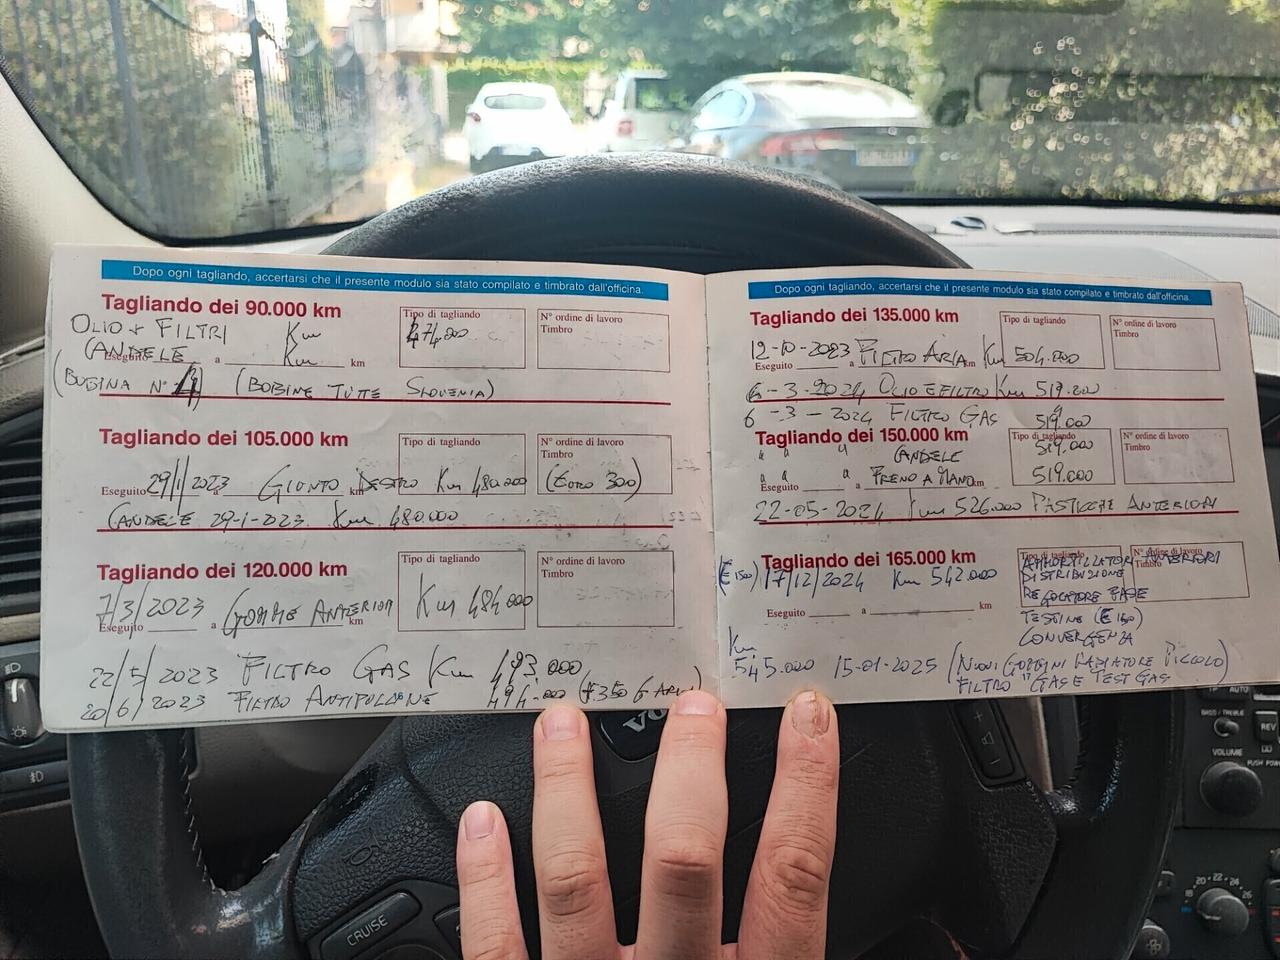 Dopo ogni tagliando, accertarsi che il presente modulo sia stato compilato e timbrato dall'officina.
Tagliando dei 90.000 km
Tipo di tagliando
N° ordine di lavoro
Timbro
OLIO + FILTRI Km 474.000
CANDELE Km
Eseguito a km
(BOBINA N° 4) (BOBINE TUTTE SLOVENIA)
Tagliando dei 105.000 km
Tipo di tagliando
N° ordine di lavoro
Timbro
Eseguito 29/1/2023 a GIUNTO DESTRO Km 480.000 (EURO 300)
km
CANDELE 29-1-2023 Km 480.000
Tagliando dei 120.000 km
Tipo di tagliando
N° ordine di lavoro
Timbro
7/3/2023 GOMME ANTERIORI Km 484.000
Eseguito a km
22/5/2023 FILTRO GAS Km 493.000
20/6/2023 FILTRO ANTIPOLLINE 494.000
Dopo ogni tagliando, accertarsi che il presente modulo sia stato compilato e timbrato dall'officina.
Tagliando dei 135.000 km
Tipo di tagliando
N° ordine di lavoro
Timbro
12-10-2023 FILTRO ARIA Km 504.000
Eseguito a km
6-3-2024 OLIO E FILTRO Km 519.000
6-3-2024 FILTRO GAS 519.000
Tagliando dei 150.000 km
Tipo di tagliando
N° ordine di lavoro
Timbro
" " " CANDELE 519.000
" " " FRENO A MANO 519.000
Eseguito a km
22-05-2024 Km 526.000 PASTICCHE ANTERIORI
Tagliando dei 165.000 km
Tipo di tagliando
N° ordine di lavoro
Timbro
(€ 1500) 17/12/2024 Km 542.000 AMMORTIZZATORI ANTERIORI
DISTRIBUZIONE
REGOLATORE FASE
Eseguito a km
TESTINE (€ 150)
CONVERGENZA
Km
545.000 15-01-2025 (NUOVI RADIATORE PICCOLO)
FILTRO GAS E TEST GAS
CRUISE
AUTO
BASS/TREBLE
REV
VOLUME
PUSH
20 22 24